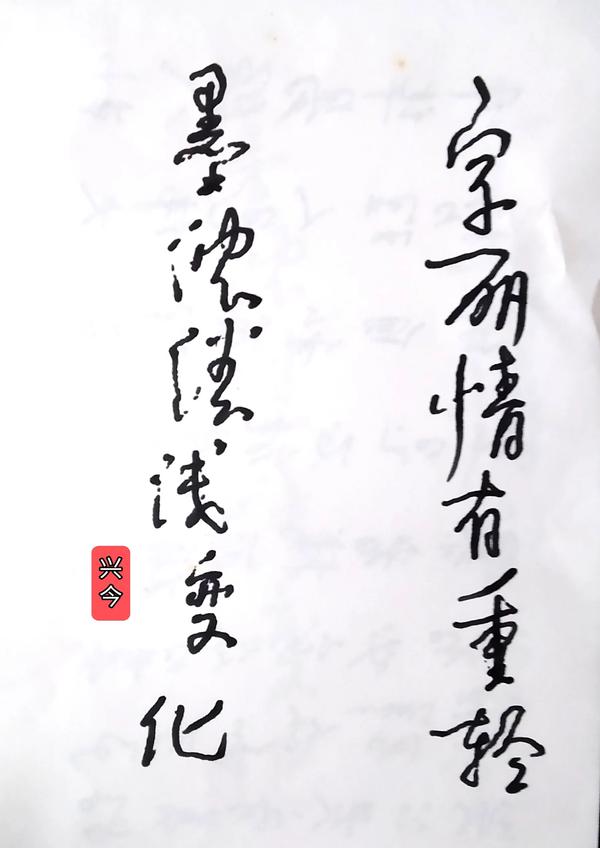 字丽情有重轻
墨浓浅变化
兴今